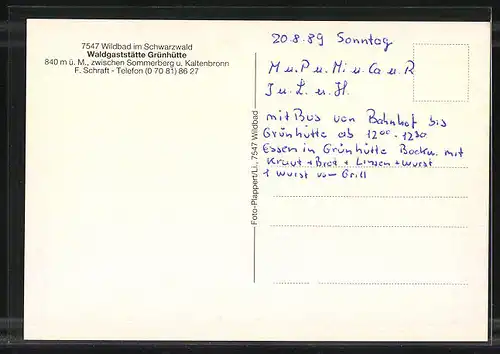 7547 Wildbad im Schwarzwald
Waldgaststätte Grünhütte
840 m ü. M., zwischen Sommerberg u. Kaltenbronn
F. Schraft - Telefon (0 70 81) 86 27
Foto-Plappert/Li., 7547 Wildbad
20.8.89 Sonntag
M u. P u. Mi u. Ca u. R
J u. L. u. H.
mit Bus von Bahnhof bis
Grünhütte ab 12 00 - 12 30
Essen in Grünhütte Bockw. mit
Kraut + Brot + Linsen + Wurst
1 Wurst vom Grill